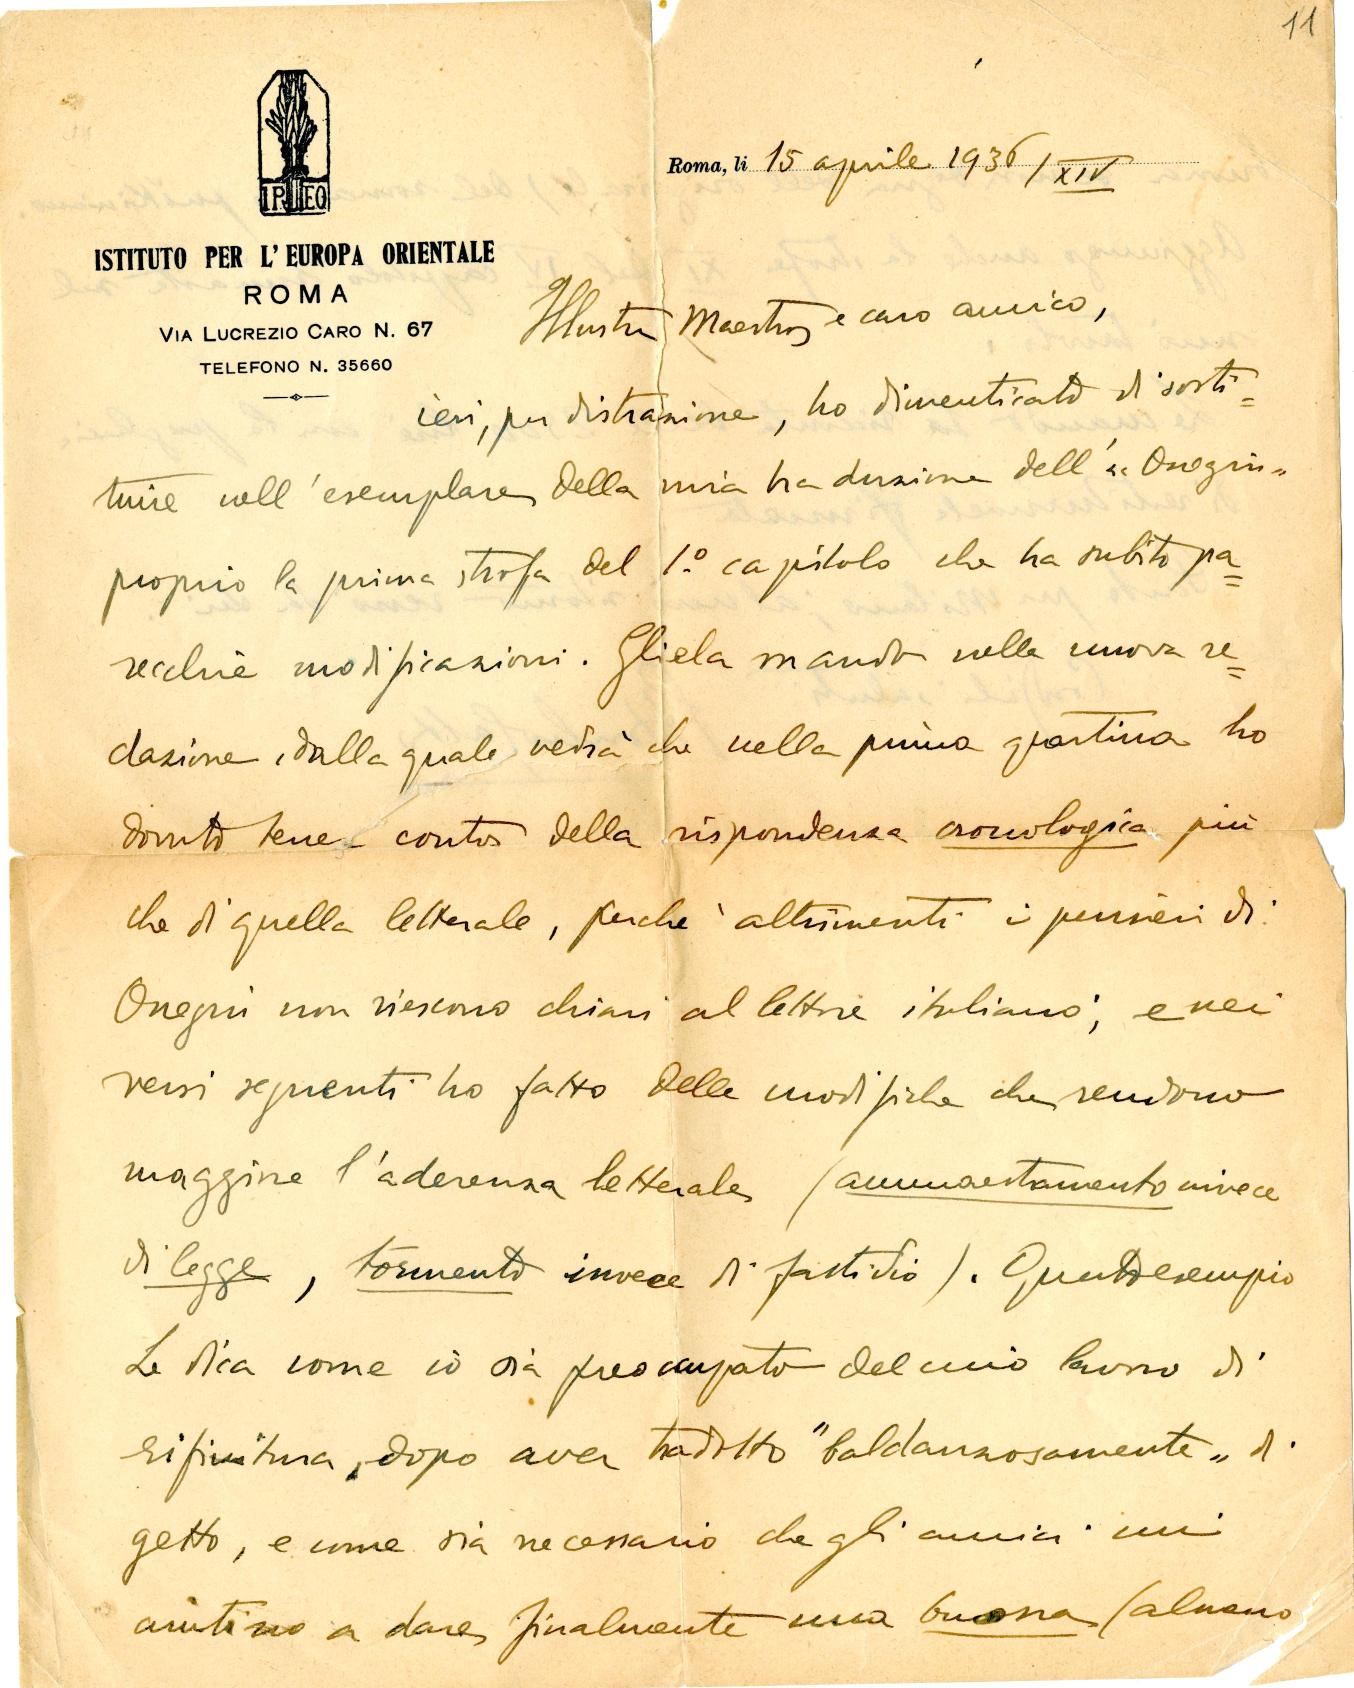 11
IPEO
ISTITUTO PER L'EUROPA ORIENTALE
ROMA
VIA LUCREZIO CARO N. 67
TELEFONO N. 35660
Roma, li 15 aprile 1936/XIV
Illustre Maestro e caro amico,
ieri, per distrazione, ho dimenticato di sosti=
tuire nell'esemplare della mia traduzione dell'"Onegin"
proprio la prima strofa del 1º capitolo che ha subito pa=
recchie modificazioni. Gliela mando nella nuova re=
dazione, dalla quale vedrà che nella prima quartina ho
dovuto tener conto della rispondenza cronologica più
che di quella letterale, perché altrimenti i pensieri di
Onegin non riescono chiari al lettore italiano; e nei
versi seguenti ho fatto delle modifiche che rendono
maggiore l'aderenza letterale (ammaestramento invece
di legge, tormento invece di fastidio). Questo esempio
Le dica come io sia preoccupato del mio lavoro di
rifinitura, dopo aver tradotto "baldanzosamente" di
getto, e come sia necessario che gli amici mi
aiutino a dare finalmente una buona (almeno